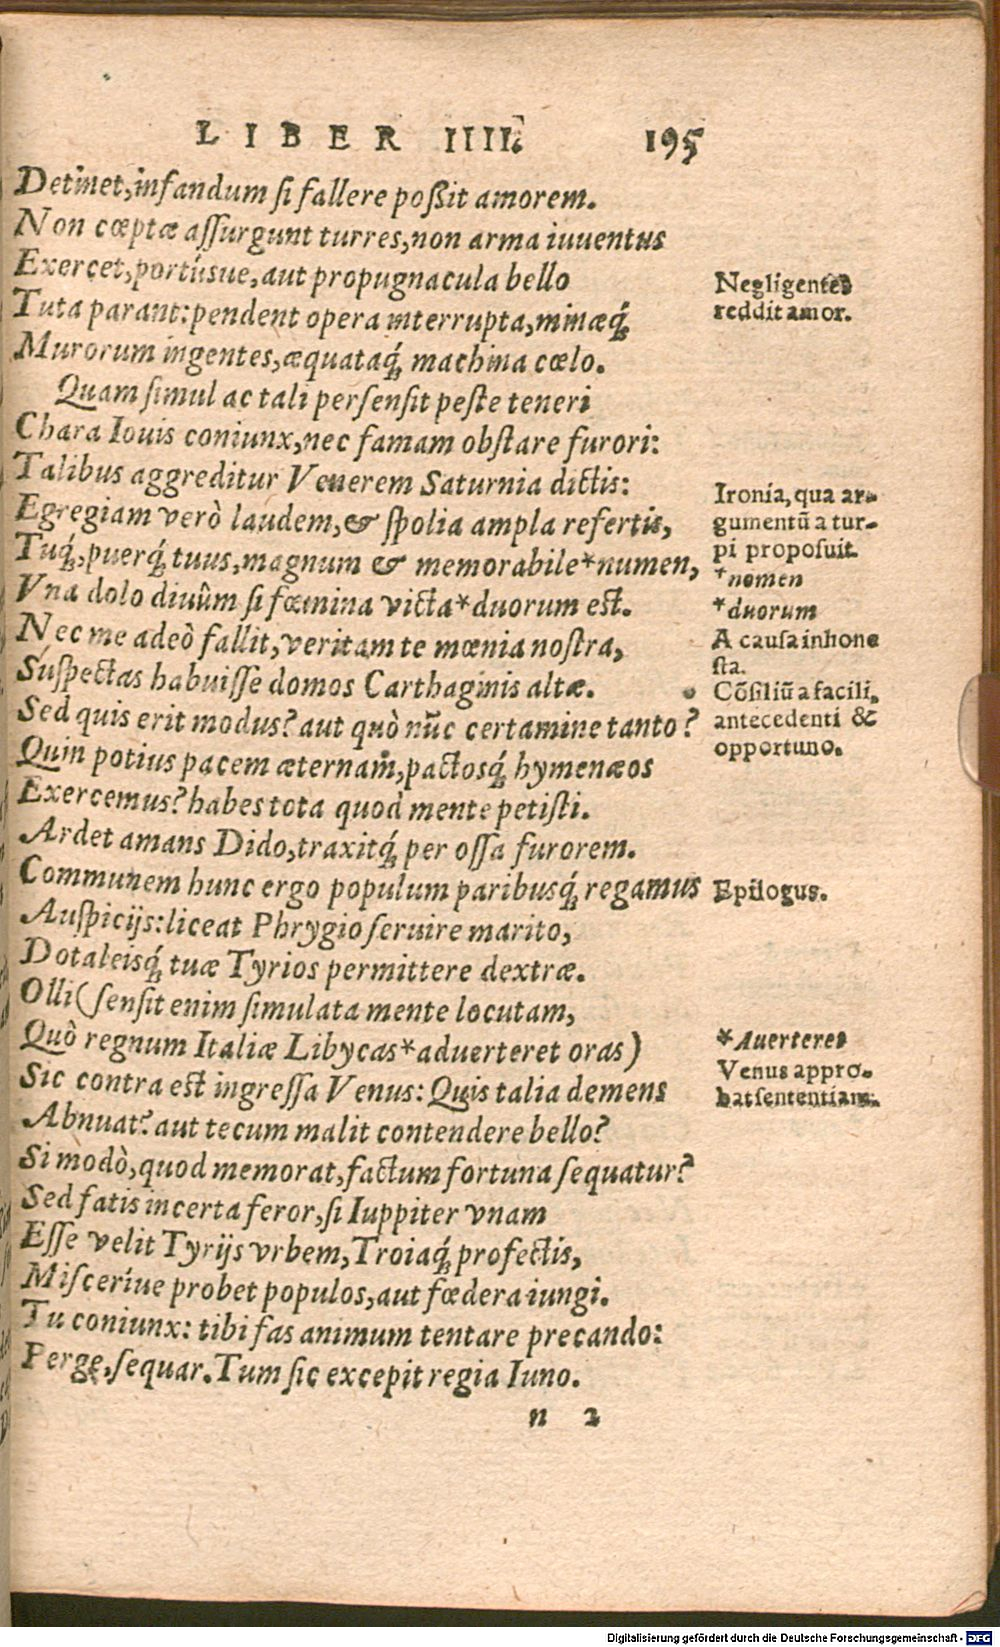 LIBER IIII. 195
Detinet, infandum ſi fallere poßit amorem.
Non cœptæ aſſurgunt turres, non arma iuuentus
Exercet, portúsue, aut propugnacula bello
Tuta parant: pendent opera interrupta, minæq́;
Murorum ingentes, æquataq́; machina cœlo.
Quam ſimul ac tali perſenſit peſte teneri
Chara Iouis coniunx, nec famam obſtare furori:
Talibus aggreditur Venerem Saturnia dictis:
Egregiam verò laudem, & ſpolia ampla refertis,
Tuq́;, puerq́; tuus, magnum & memorabile*numen,
Vna dolo diuûm ſi fœmina victa*duorum est.
Nec me adeò fallit, veritam te mœnia noſtra,
Suſpectas habuiſſe domos Carthaginis altæ.
Sed quis erit modus? aut quò nūc certamine tanto?
Quin potius pacem æternam, pactosq́; hymenæos
Exercemus? habes tota quod mente petiſti.
Ardet amans Dido, traxitq́; per oſſa furorem.
Communem hunc ergo populum paribusq́; regamus
Auſpicijs: liceat Phrygio ſeruire marito,
Dotaleisq́; tuæ Tyrios permittere dextræ.
Olli (ſenſit enim ſimulata mente locutam,
Quò regnum Italiæ Libycas*aduerteret oras)
Sic contra est ingreſſa Venus: Quis talia demens
Abnuat? aut tecum malit contendere bello?
Si modò, quod memorat, factum fortuna ſequatur?
Sed fatis incerta feror, ſi Iuppiter vnam
Eſſe velit Tyrijs vrbem, Troiaq́; profectis,
Miſceríue probet populos, aut fœdera iungi.
Tu coniunx: tibi fas animum tentare precando:
Perge, ſequar. Tum ſic excepit regia Iuno.
n 2
Negligentes
reddit amor.
Ironia, qua ar-
gumentū a tur-
pi propoſuit.
*nomen
*duorum
A cauſa inhone
ſta.
Cōſiliū a facili,
antecedenti &
opportuno.
Epilogus.
*Auerteret
Venus appro-
bat ſententiam.
Digitalisierung gefördert durch die Deutsche Forschungsgemeinschaft - DFG